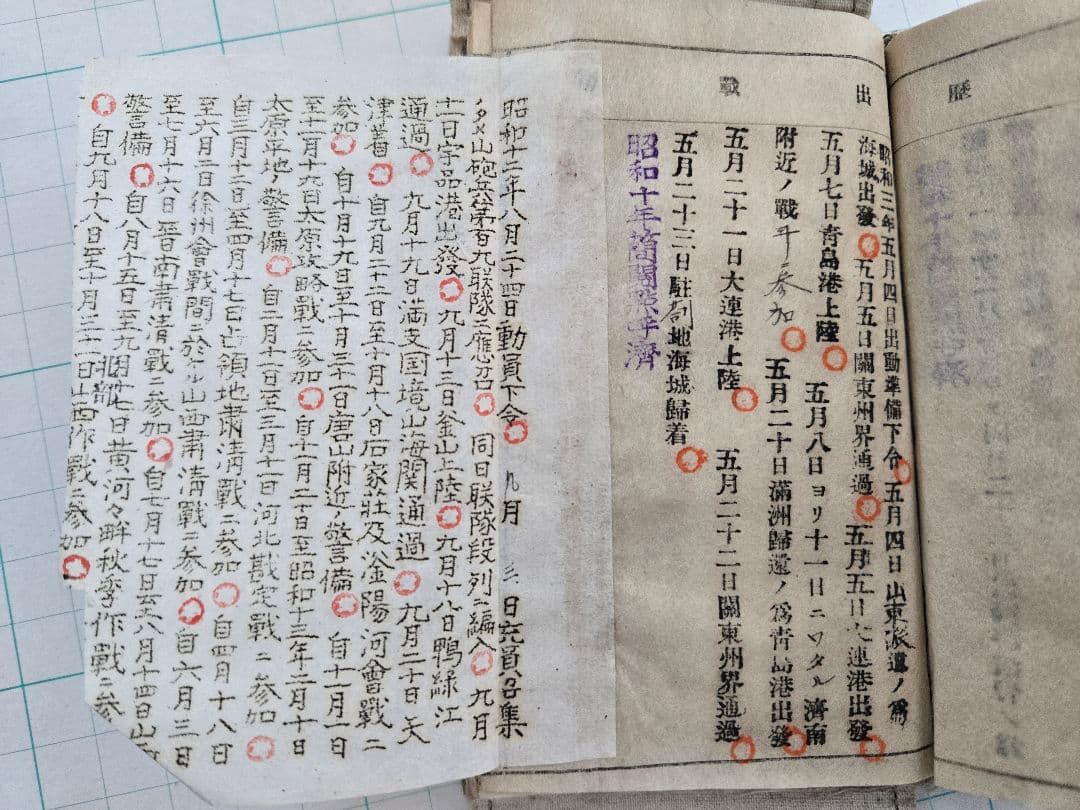 歴
出 戰
昭和三年五月四日出動準備下令 五月四日山東派遣ノ爲
海城出發 五月五日關東州界通過 五月五日大連港出發
五月七日青島港上陸 五月八日ヨリ十一日ニワタル濟南
附近ノ戰斗參加 五月二十日滿洲歸還ノ爲青島港出發
五月二十一日大連港上陸 五月二十二日關東州界通過
五月二十三日駐剳地海城歸着
昭和十年簡閲點呼濟
昭和十二年八月二十四日動員下令 九月三日充員召集
ノタメ山砲兵第百九联隊ニ應召 同日联隊段列ニ編入 九月
十二日宇品港出發 九月十三日釜山上陸 九月十八日鴨緑江
通過 九月十九日満支国境山海関通過 九月二十日天
津着 自九月二十二日至十月十八日石家莊及滏陽河會戰ニ
参加 自十月十九日至十月三十一日唐山附近ノ警備 自十一月一日
至十一月十九日太原攻略戰ニ参加 自十一月二十日至昭和十三年二月十日
太原平地ノ警備 自二月十一日至三月十一日河北戡定戰ニ参加
自三月十二日至四月十七日占領地肅清戰ニ参加 自四月十八日
至六月二日徐州會戰間ニ於ケル山西肅清戰ニ参加 自六月三日
至七月十六日晋南肅清戰ニ参加 自七月十七日至八月十四日山西
警備 自八月十五日至九月十七日黄河々畔秋季作戰ニ参
自九月十八日至十月三十一日北部山西作戰ニ参加